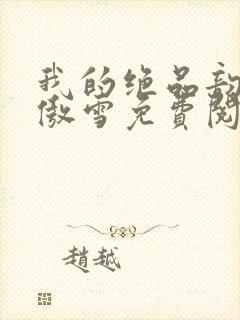 我的绝品
傲雪免費閱
趙越